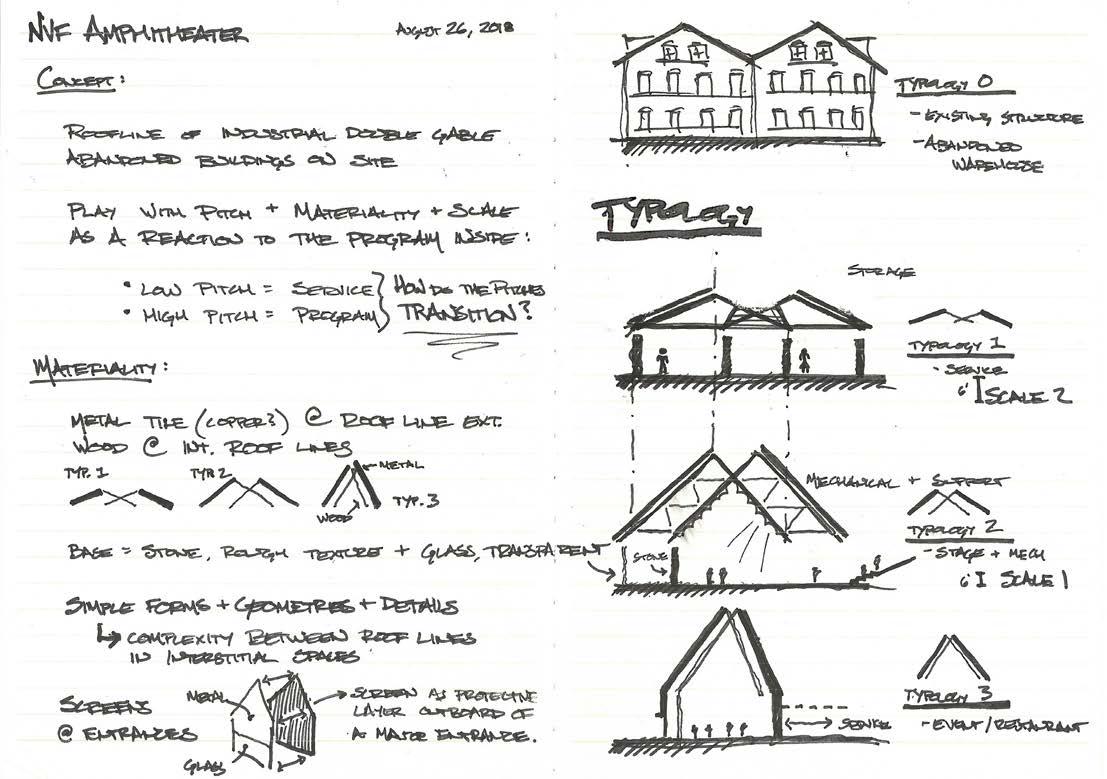 NVF AMPHITHEATER
AUGUST 26, 2018
CONCEPT:
ROOFLINE OF INDUSTRIAL DOUBLE GABLE
ABANDONED BUILDINGS ON SITE
PLAY WITH PITCH + MATERIALITY + SCALE
AS A REACTION TO THE PROGRAM INSIDE:
• LOW PITCH = SERVICE
• HIGH PITCH = PROGRAM
HOW DO THE PITCHES
TRANSITION?
MATERIALITY:
METAL TILE (COPPER?) @ ROOF LINE EXT.
WOOD @ INT. ROOF LINES
TYP. 1
TYP. 2
METAL
TYP. 3
WOOD
BASE = STONE, ROUGH TEXTURE + GLASS, TRANSPARENT
SIMPLE FORMS + GEOMETRIES + DETAILS
COMPLEXITY BETWEEN ROOF LINES
IN INTERSTITIAL SPACES
SCREENS
@ ENTRANCES
METAL
GLASS
SCREEN AS PROTECTIVE
LAYER OUTBOARD OF
A MAJOR ENTRANCE.
TYPOLOGY 0
- EXISTING STRUCTURE
- ABANDONED
WAREHOUSE
TYPOLOGY
STORAGE
TYPOLOGY 1
- SERVICE
6' SCALE 2
MECHANICAL + SUPPORT
TYPOLOGY 2
- STAGE + MECH
6' SCALE 1
STONE
TYPOLOGY 3
- EVENT/RESTAURANT
SERVICE